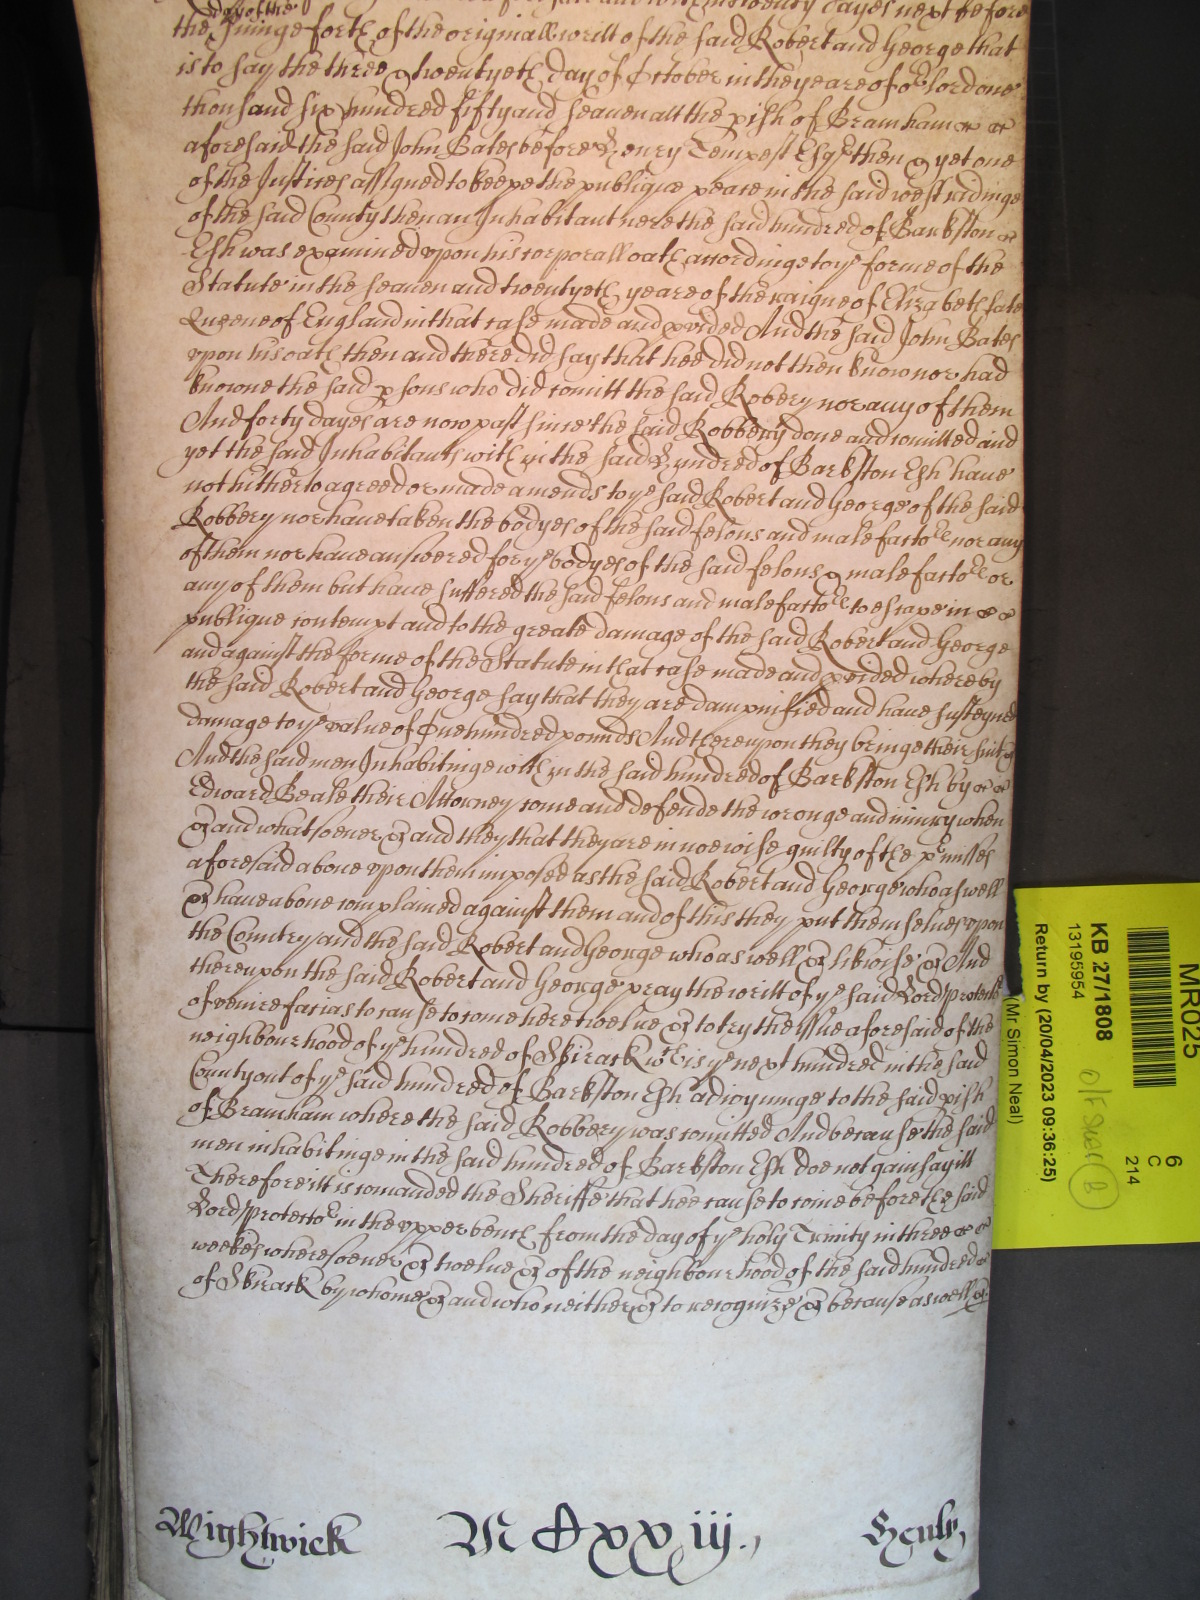 day of the
the suinge forth of the originall writt of the said Robert and George that
is to say the three & twentyeth day of October in the yeare of or Lord one
thousand six hundred fifty and seaven att the pish of Bramham
aforesaid the said John Bates before Henry Tempest Esqr then & yet one
of the Justices assigned to keepe the publique peace in the said west ridinge
of the said County then an Inhabitant nere the said hundred of Barkston
Esh was examined upon his corporall oath accordinge to ye forme of the
Statute in the seaven and twentyeth yeare of the raigne of Elizabeth late
Queene of England in that case made and pvided And the said John Bates
upon his oath then and there did say that hee did not then know nor had
knowne the said psons who did comitt the said Robery nor any of them
And forty dayes are now past since the said Robbery done and comitted and
yet the said Inhabitants within the said Hundred of Barkston Esh have
not hitherto agreed or made amends to ye said Robert and George of the said
Robbery nor have taken the bodyes of the said felons and malefactors nor any
of them nor have answered for ye bodyes of the said felons & malefactors or
any of them but have suffered the said felons and malefactors to escape in
publique contempt and to the greate damage of the said Robert and George
and against the forme of the Statute in that case made and pvided whereby
the said Robert and George say that they are dampnified and have susteyned
damage to ye value of One hundred pounds And thereupon they bringe their suit &c
And the said men Inhabitinge within the said hundred of Barkston Esh by
Edward Beale their Attorney come and defende the wronge and iniury when
&c and whatsoever &c and they that they are in noe wise guilty of the pmisses
aforesaid above upon them imposed as the said Robert and George who as well
&c have above complained against them and of this they put themselves upon
the Country and the said Robert and George who as well &c likwise &c And
thereupon the said Robert and George pray the writt of ye said Lord Protector
of venire facias to cause to come here twelve &c to try the issue aforesaid of the
neighbourhood of ye hundred of Skirack wch is ye next hundred in the said
County out of ye said hundred of Barkston Esh adioyninge to the said pish
of Bramham where the said Robbery was comitted And because the said
men inhabitinge in the said hundred of Barkston Esh doe not gainsay itt
Therefore itt is comanded the Sheriffe that hee cause to come before the said
Lord Protector in the upper bench from the day of ye holy Trinity in three
weekes wheresoever &c twelve &c of the neighbourhood of the said hundred
of Skirack by whome &c and who neither &c to recognize &c because as well &c
Wightwick MDxxiij. Henly
MR025
6
C
214
KB 27/1808
13195954
Return by (20/04/2023 09:36:25)
(Mr Simon Neal)